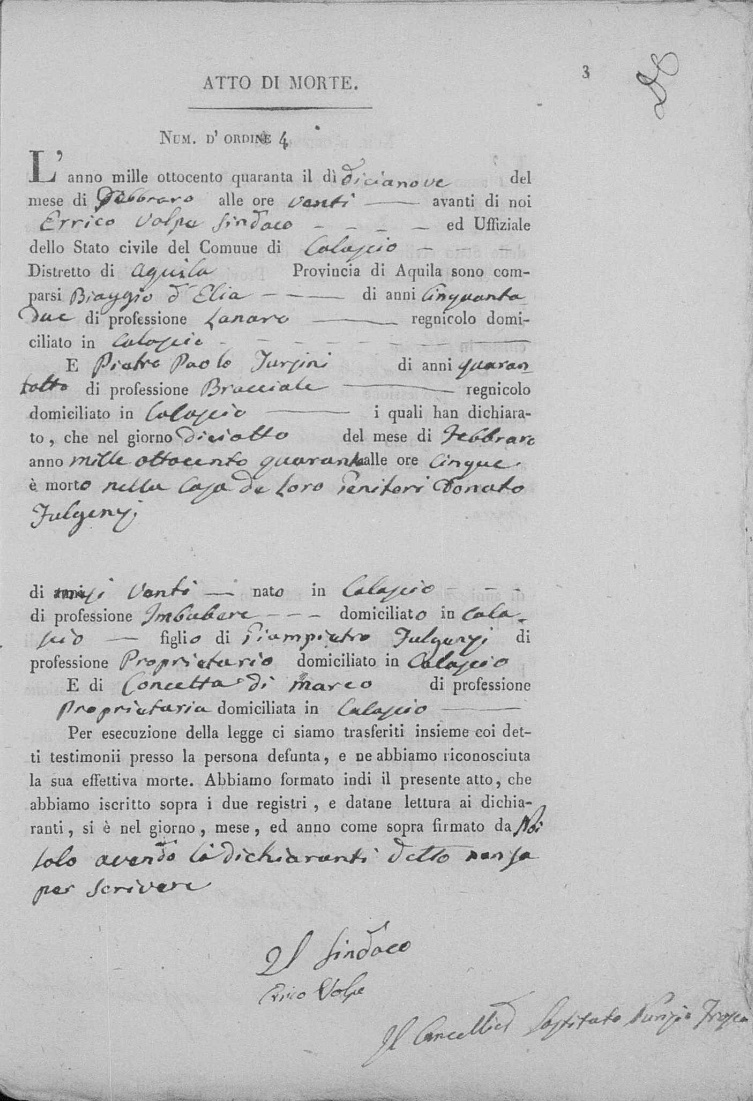 3
ATTO DI MORTE.
NUM. D' ORDINE 4
L' anno mille ottocento quaranta il dì dicianove del
mese di Febbraro alle ore venti avanti di noi
Errico Volpe Sindaco ed Uffiziale
dello Stato civile del Comune di Calascio
Distretto di Aquila Provincia di Aquila sono com-
parsi Biaggio d'Elia di anni Cinquanta
due di professione Lanaro regnicolo domi-
ciliato in Calascio
E Pietro Paolo di anni quaran
totto di professione Bracciale regnicolo
domiciliato in Calascio i quali han dichiara-
to, che nel giorno diciotto del mese di Febbraro
anno mille ottocento quaranta alle ore Cinque
è morto nella Casa de loro Genitori Donato
Fulgenzj
di mesi Venti nato in Calascio
di professione Imbubere domiciliato in Cala-
scio figlio di Giampietro Fulgenzj di
professione Proprietario domiciliato in Calascio
E di Concetta di Marco di professione
Proprietaria domiciliata in Calascio
Per esecuzione della legge ci siamo trasferiti insieme coi det-
ti testimonii presso la persona defunta, e ne abbiamo riconosciuta
la sua effettiva morte. Abbiamo formato indi il presente atto, che
abbiamo iscritto sopra i due registri, e datane lettura ai dichia-
ranti, si è nel giorno, mese, ed anno come sopra firmato da Noi
solo avendo li dichiaranti detto non sa
per scrivere
Il Sindaco
Errico Volpe
Il Cancellier Sostituto